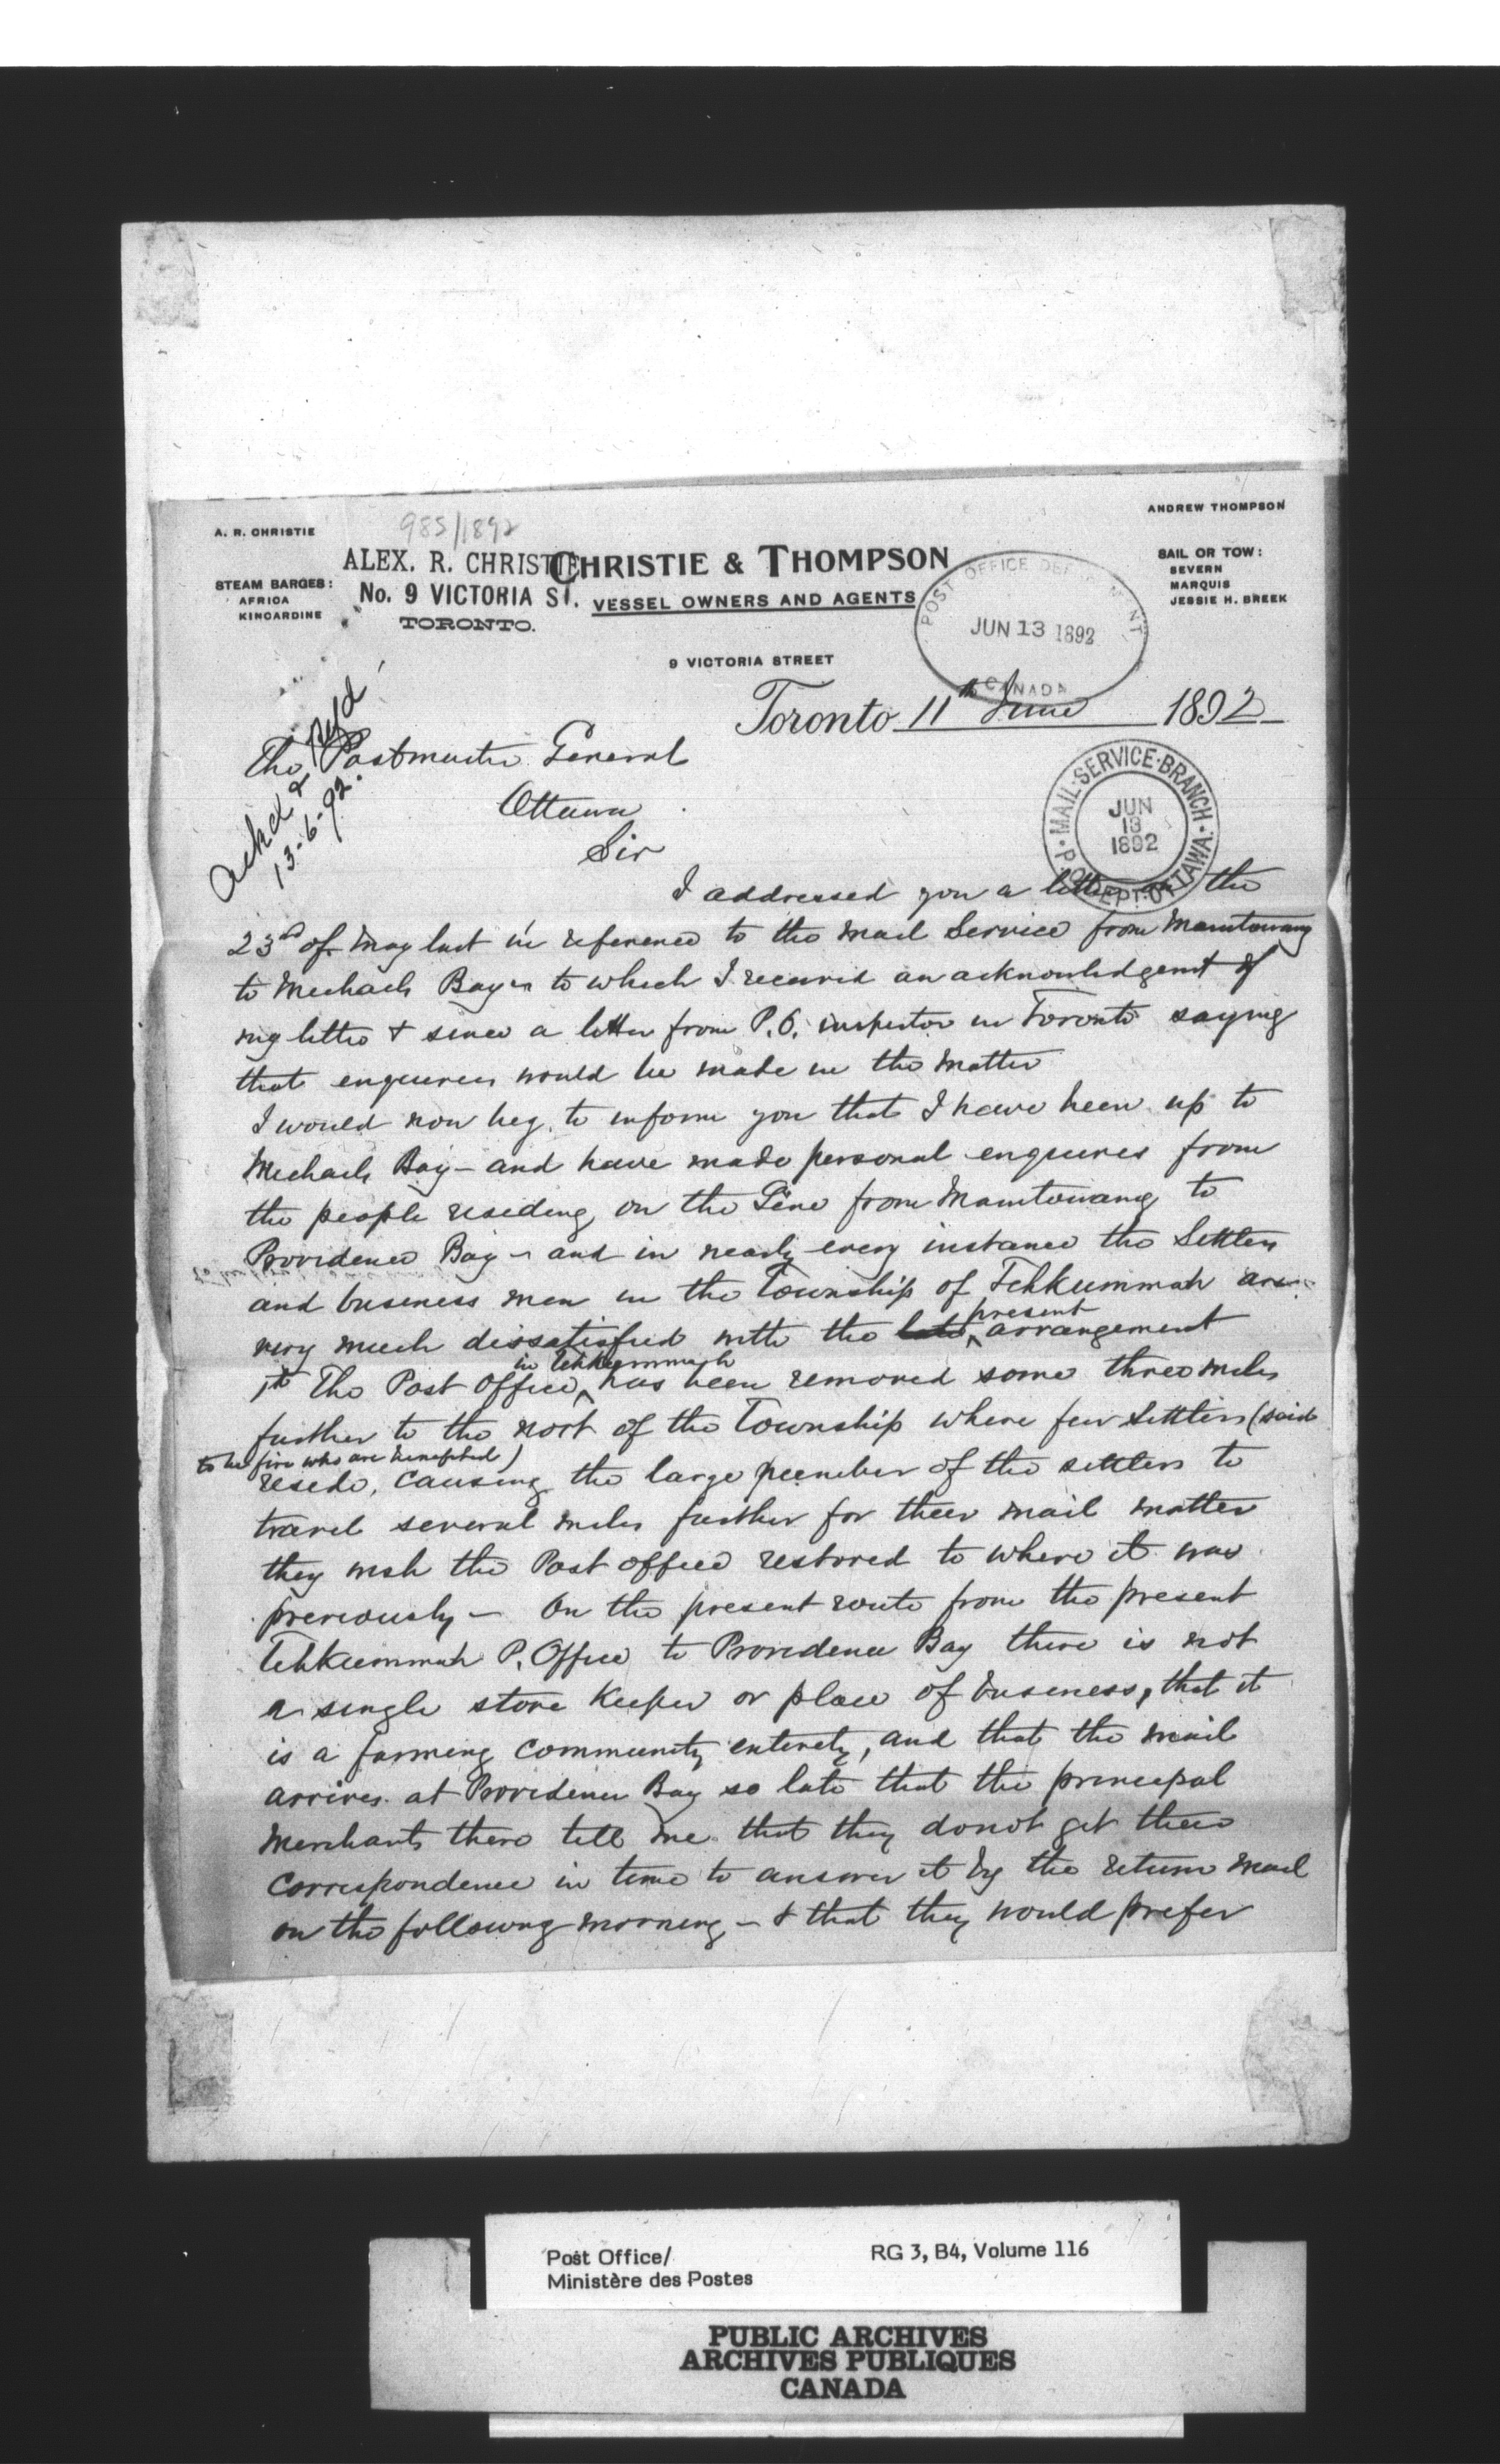 985/1892
A. R. CHRISTIE
ANDREW THOMPSON
ALEX. R. CHRISTIE
CHRISTIE & THOMPSON
STEAM BARGES:
AFRICA
KINCARDINE
No. 9 VICTORIA ST.
TORONTO.
VESSEL OWNERS AND AGENTS
SAIL OR TOW:
SEVERN
MARQUIS
JESSIE H. BREEK
9 VICTORIA STREET
POST OFFICE DEPARTMENT
JUN 13 1892
CANADA
Toronto 11th June 1892
Ackd & Rfd
13-6-92.
The Postmaster General
Ottawa
Sir
MAIL SERVICE BRANCH
JUN
13
1892
P.O. DEPT. OTTAWA.
I addressed you a letter on the
23rd of May last in reference to the Mail Service from Manitowang
to Michaels Bay - to which I received an acknowledgemt of
my letter & since a letter from P.O. inspector in Toronto saying
that enquiries would be made in the matter
I would now beg to inform you that I have been up to
Michaels Bay - and have made personal enquires from
the people residing on the Line from Manitowang to
Providence Bay - and in nearly every instance the Settlers
and business men in the Township of Tehkummah are
very much dissatisfied with the late present arrangement
1st The Post Office in Tehkummah has been removed some three miles
further to the nort of the Township where few Settlers (said
to be five who are benefitted)
reside, causing the large number of the settlers to
travel several miles further for their mail matter
they wish the Post office restored to where it was
previously - On the present route from the present
Tehkummah P. Office to Providence Bay there is not
a single store Keeper or place of business, that it
is a farming community entirely, and that the mail
arrives at Providence Bay so late that the principal
Merchants there tell me that they do not get their
Correspondence in time to answer it by the return mail
on the following morning - & that they would prefer
Post Office/
Ministère des Postes
RG 3, B4, Volume 116
PUBLIC ARCHIVES
ARCHIVES PUBLIQUES
CANADA